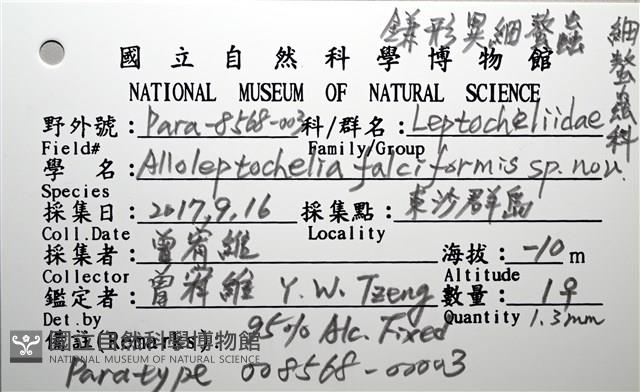 鎌形異細螯蟲
細螯蟲科
國立自然科學博物館
NATIONAL MUSEUM OF NATURAL SCIENCE
野外號：Para-8568-003 科/群名：Leptocheliidae
Field# Family/Group
學 名：Alloleptochelia falciformis sp. nov.
Species
採集日：2017.9.16 採集點：東沙群島
Coll.Date Locality
採集者：曾宥維 海拔：-10 m
Collector Altitude
鑑定者：曾宥維 Y.W. Tzeng 數量：1♀
Det.by Quantity 1.3mm
備註(Remarks): 95% Alc. Fixed
國立自然科學博物館
NATIONAL MUSEUM OF NATURAL SCIENCE
Paratype 008568-00003